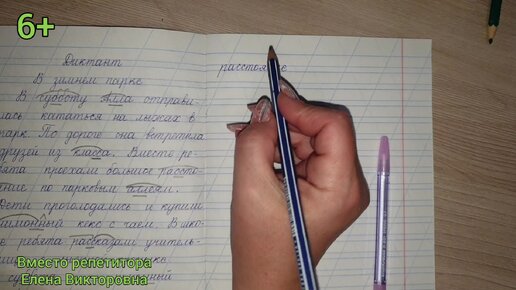 6+
Диктант
расстояние
В зимнем парке
В субботу Алла отправи-
лась кататься на лыжах в
парк. По дороге она встретила
друзей из класса. Вместе ре-
бята проехали большое рассто-
ние по парковым аллеям.
ости проголодались и купили
лимонный кекс с чаем. В шко-
е ребята рассказали учитель-
Вместо репетитора
Елена Викторовна